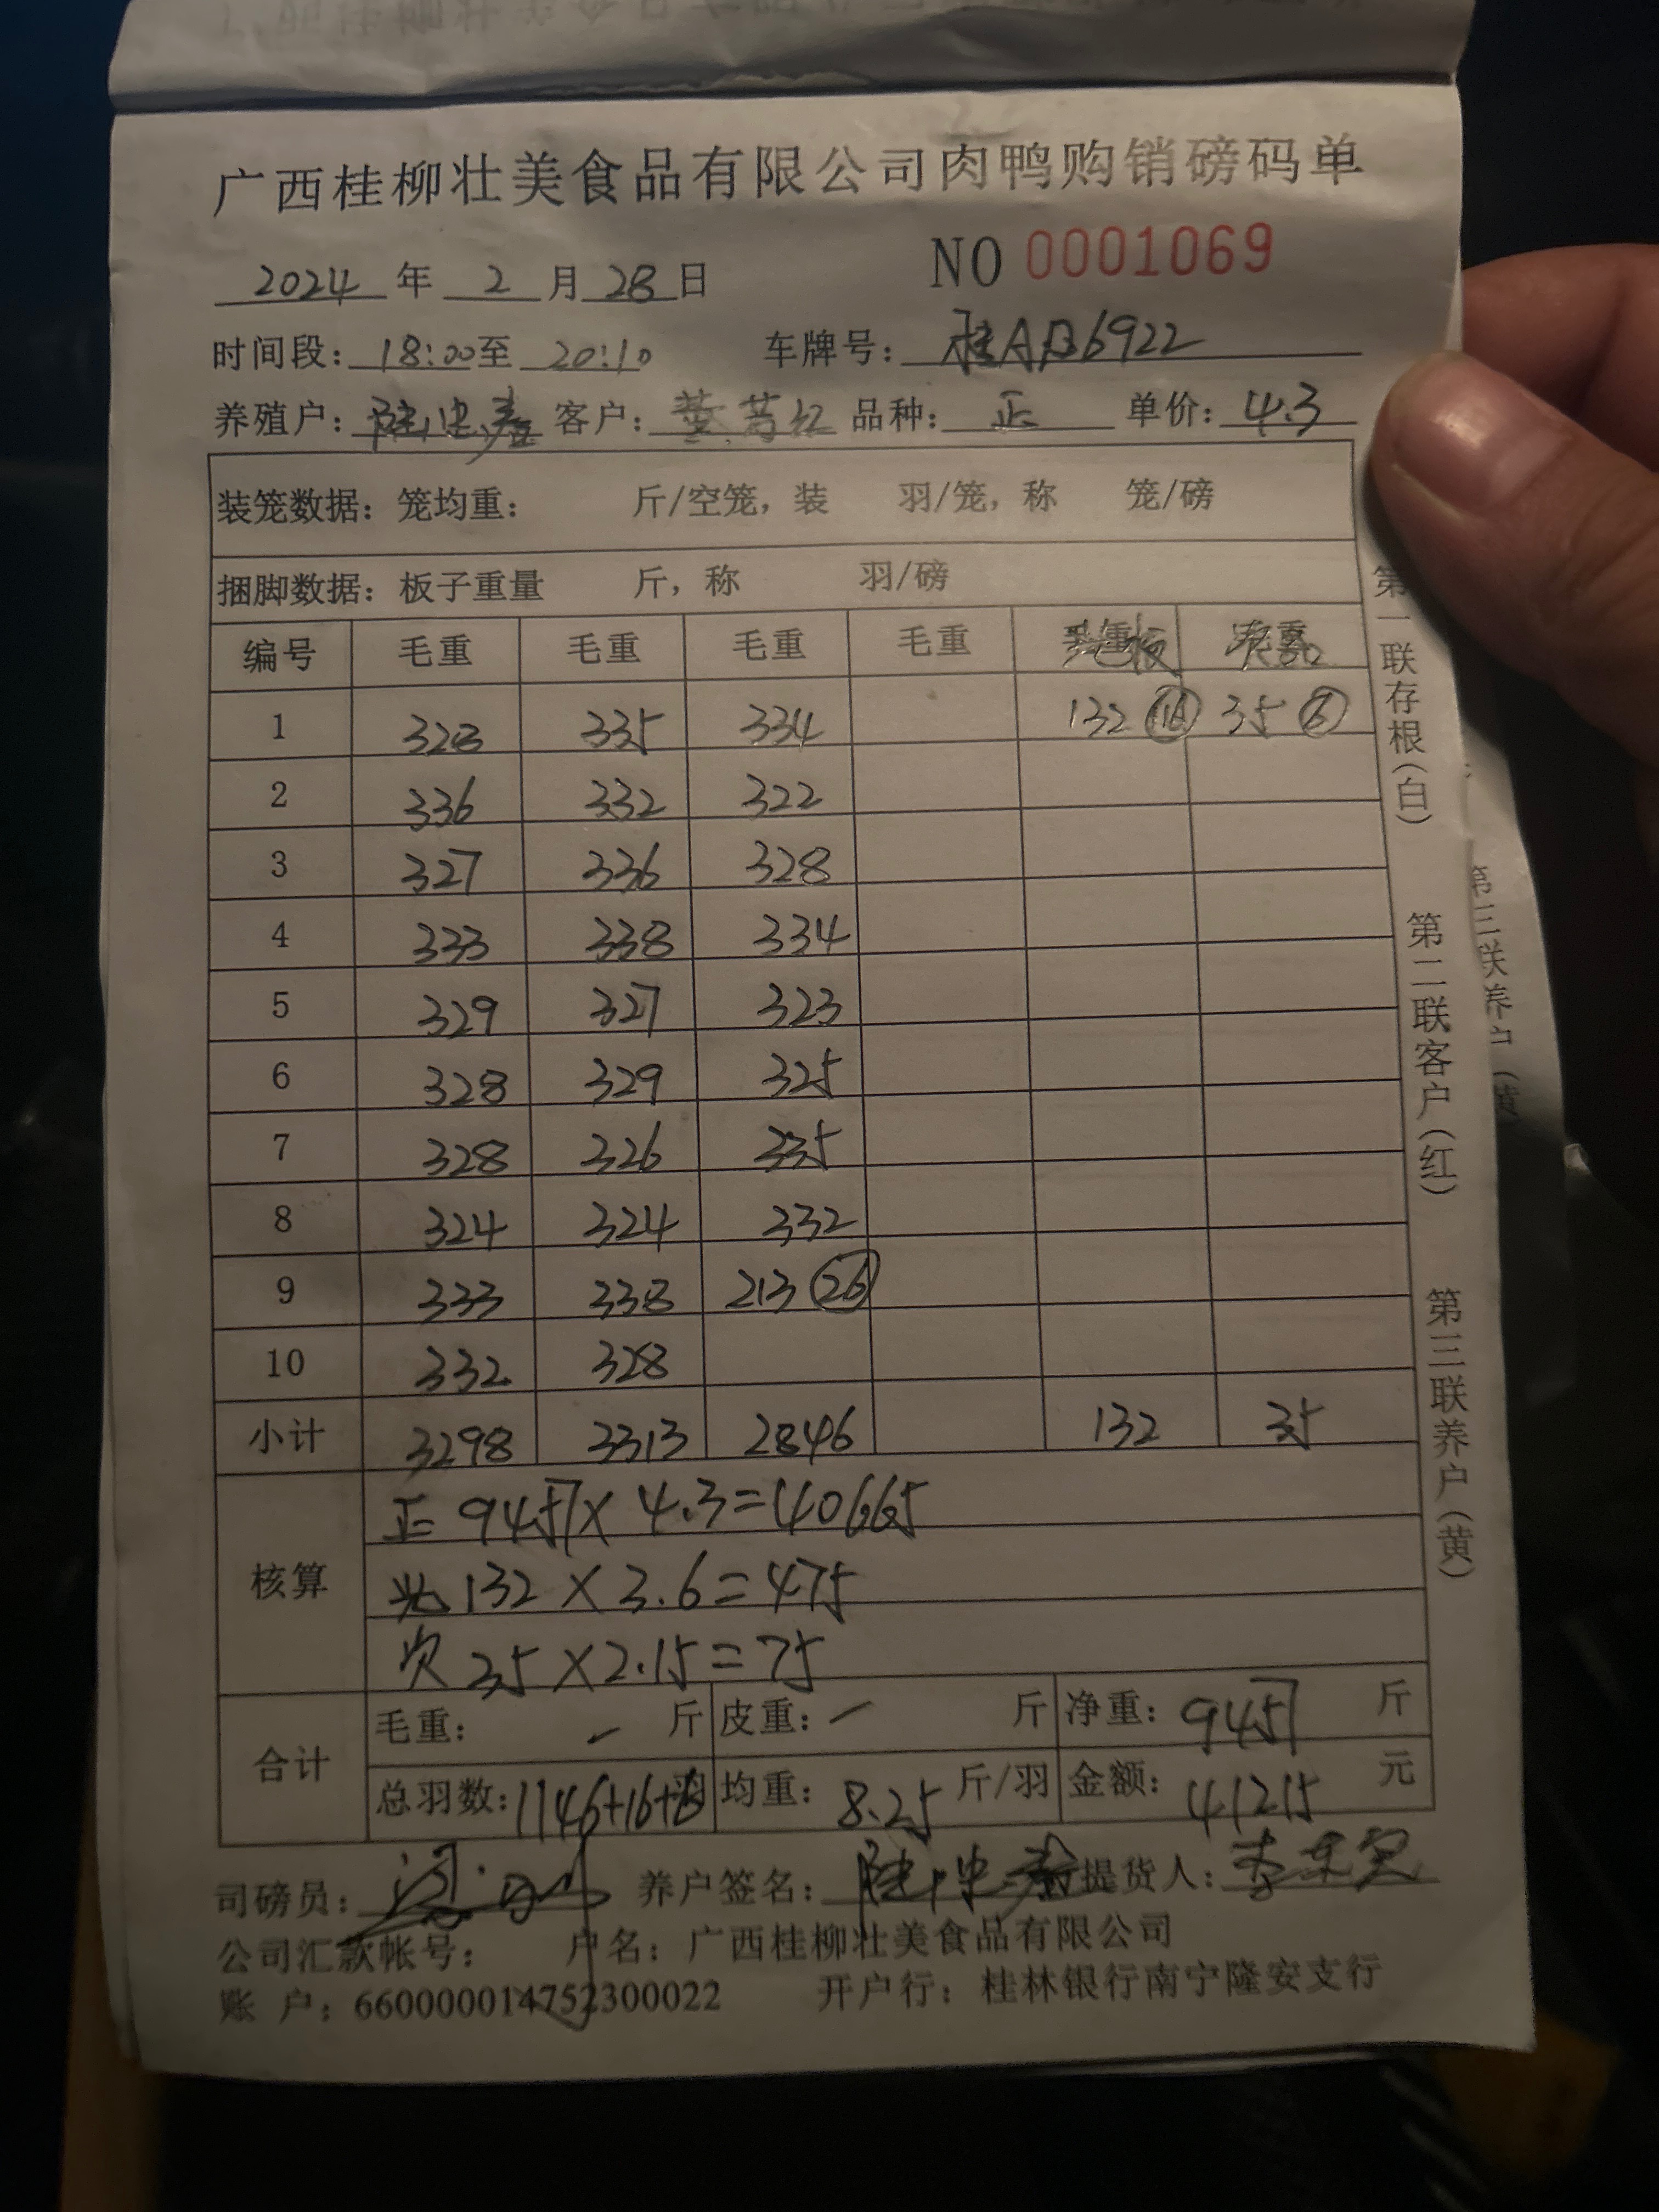 广西桂柳壮美食品有限公司肉鸭购销磅码单
NO 0001069
2024 年 2 月 28 日
时间段: 18:00 至 20:10 车牌号: 桂AB6922
养殖户: 陆忠 客户: 红 品种: 正 单价: 4.3
装笼数据: 笼均重: 斤/空笼, 装 羽/笼, 称 笼/磅
捆脚数据: 板子重量 斤, 称 羽/磅
编号 毛重 毛重 毛重 毛重
1 323 335 334 132 16 35 6
2 336 332 322
3 327 336 328
4 333 338 334
5 329 327 323
6 328 329 325
7 328 326 335
8 324 324 332
9 333 338 213 26
10 332 328
小计 3298 3313 2846 132 35
核算
正 9457 × 4.3 = 40665
132 × 3.6 = 475
次 35 × 2.15 = 75
合计
毛重: — 斤 皮重: — 斤 净重: 9457 斤
总羽数: 1146+16+6 均重: 8.25 斤/羽 金额: 41215 元
司磅员: 养户签名: 陆忠 提货人: 李
公司汇款帐号: 户名: 广西桂柳壮美食品有限公司
账 户: 660000014752300022 开户行: 桂林银行南宁隆安支行
第一联存根(白)
第二联客户(红)
第三联养户(黄)
第三联养户(黄